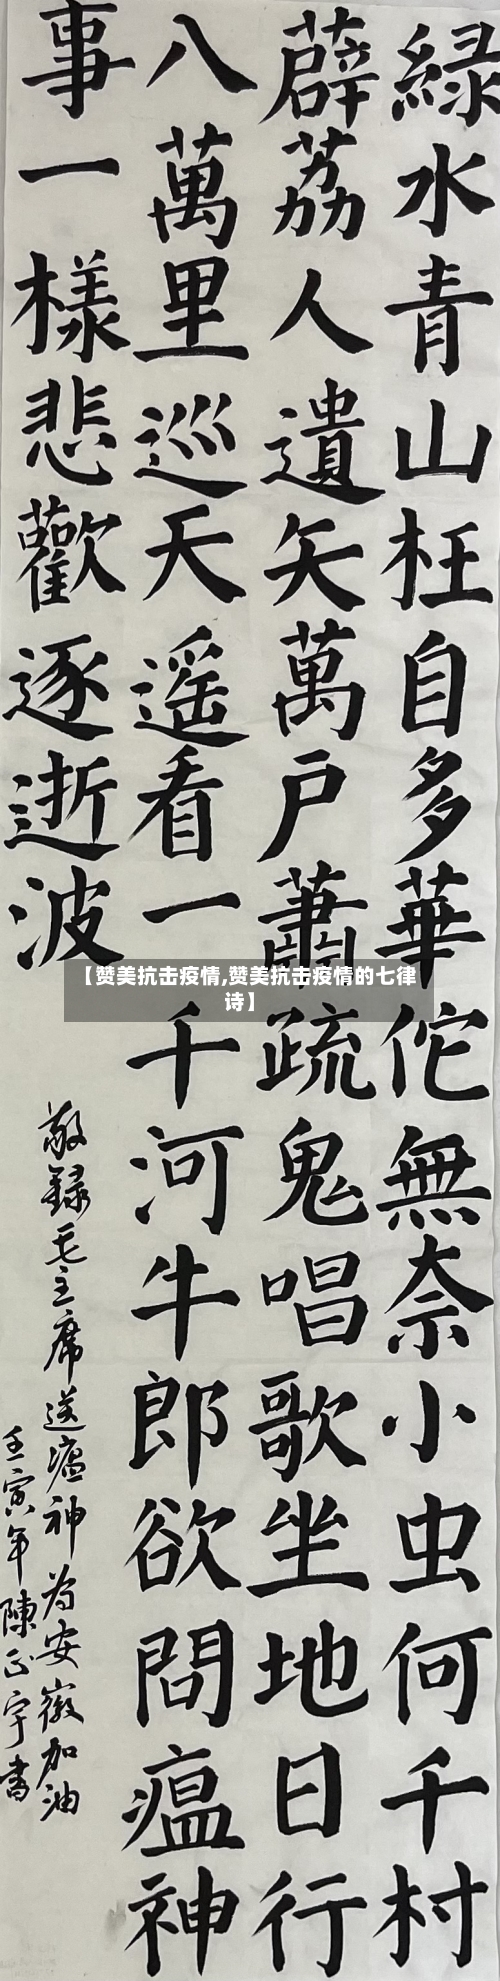 緑水青山枉自多華佗無奈小虫何千村
薜荔人遺矢萬户蕭疏鬼唱歌坐地日行
八萬里巡天遥看一千河牛郎欲問瘟神
事一樣悲歡逐逝波
敬録毛主席送瘟神为安徽加油
壬寅年陳正宇書
【赞美抗击疫情,赞美抗击疫情的七律
诗】